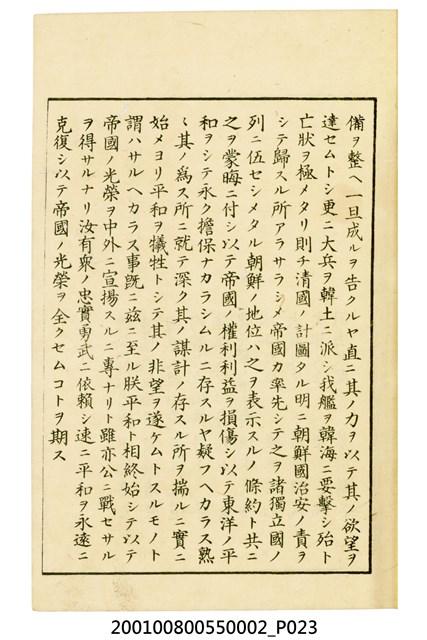 備ヲ整ヘ一旦成ルヲ告クルヤ直ニ其ノ力ヲ以テ其ノ欲望ヲ
達セムトシ更ニ大兵ヲ韓土ニ派シ我艦ヲ韓海ニ要擊シ殆ト
亡狀ヲ極メタリ則チ清國ノ計圖タル明ニ朝鮮國治安ノ責ヲ
シテ歸スル所アラサラシメ帝國カ率先シテ之ヲ諸獨立國ノ
列ニ伍セシメタル朝鮮ノ地位ハ之ヲ表示スルノ條約ト共ニ
之ヲ蒙晦ニ付シ以テ帝國ノ權利利益ヲ損傷シ以テ東洋ノ平
和ヲシテ永ク擔保ナカラシムルニ存スルヤ疑フヘカラス熟
ヽ其ノ爲ス所ニ就テ深ク其ノ謀計ノ存スル所ヲ揣ルニ實ニ
始メヨリ平和ヲ犧牲トシテ其ノ非望ヲ遂ケムトスルモノト
謂ハサルヘカラス事旣ニ茲ニ至ル朕平和ト相終始シテ以テ
帝國ノ光榮ヲ中外ニ宣揚スルニ專ナリト雖亦公ニ戰セサル
ヲ得サルナリ汝有衆ノ忠實勇武ニ依賴シ速ニ平和ヲ永遠ニ
克復シ以テ帝國ノ光榮ヲ全クセムコトヲ期ス
200100800550002_P023